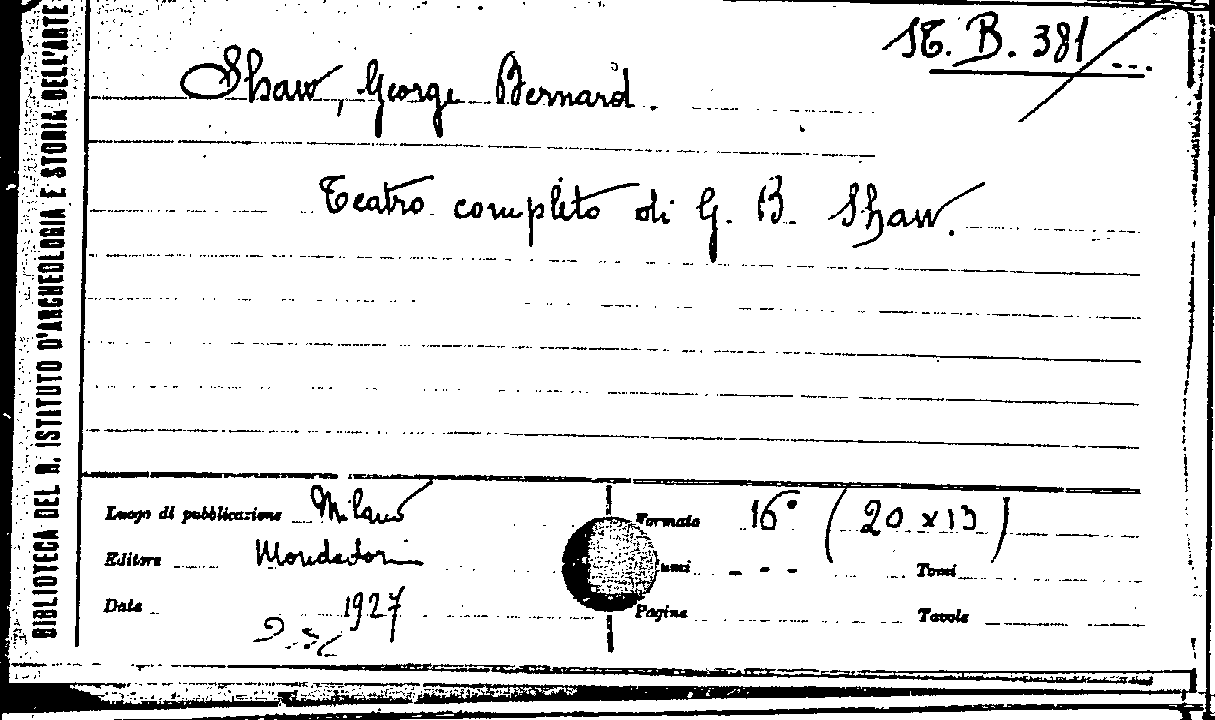 BIBLIOTECA DEL R. ISTITUTO D'ARCHEOLOGIA E STORIA DELL'ARTE
St. B. 381/...
Shaw, George Bernard.
Teatro completo di G. B. Shaw.
Luogo di pubblicazione Milano
Editore Mondadori
Data 1927
Formato 16° (20 x 13)
umi - - - Tomi
Pagine Tavole